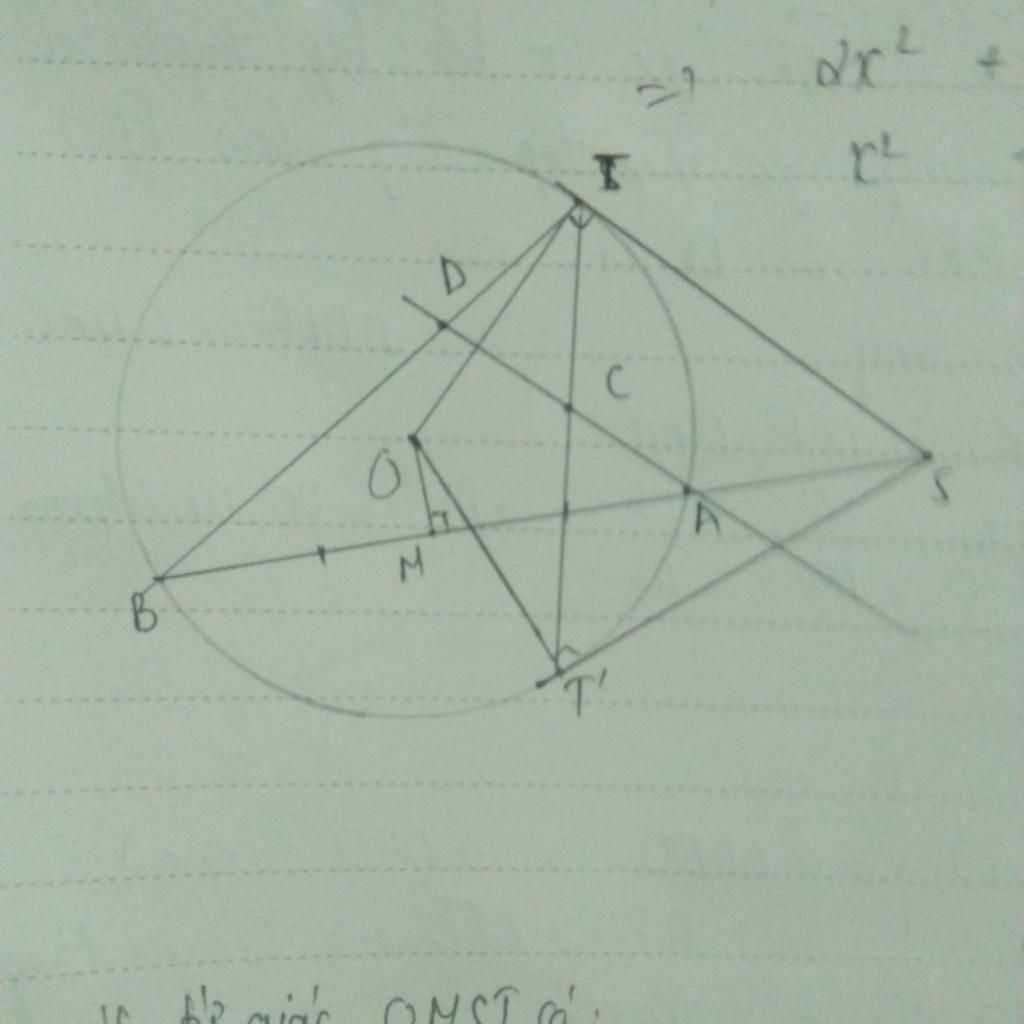 => 2x² +
x²
T
D
C
O
S
A
M
B
T'
tứ giác OMST có: